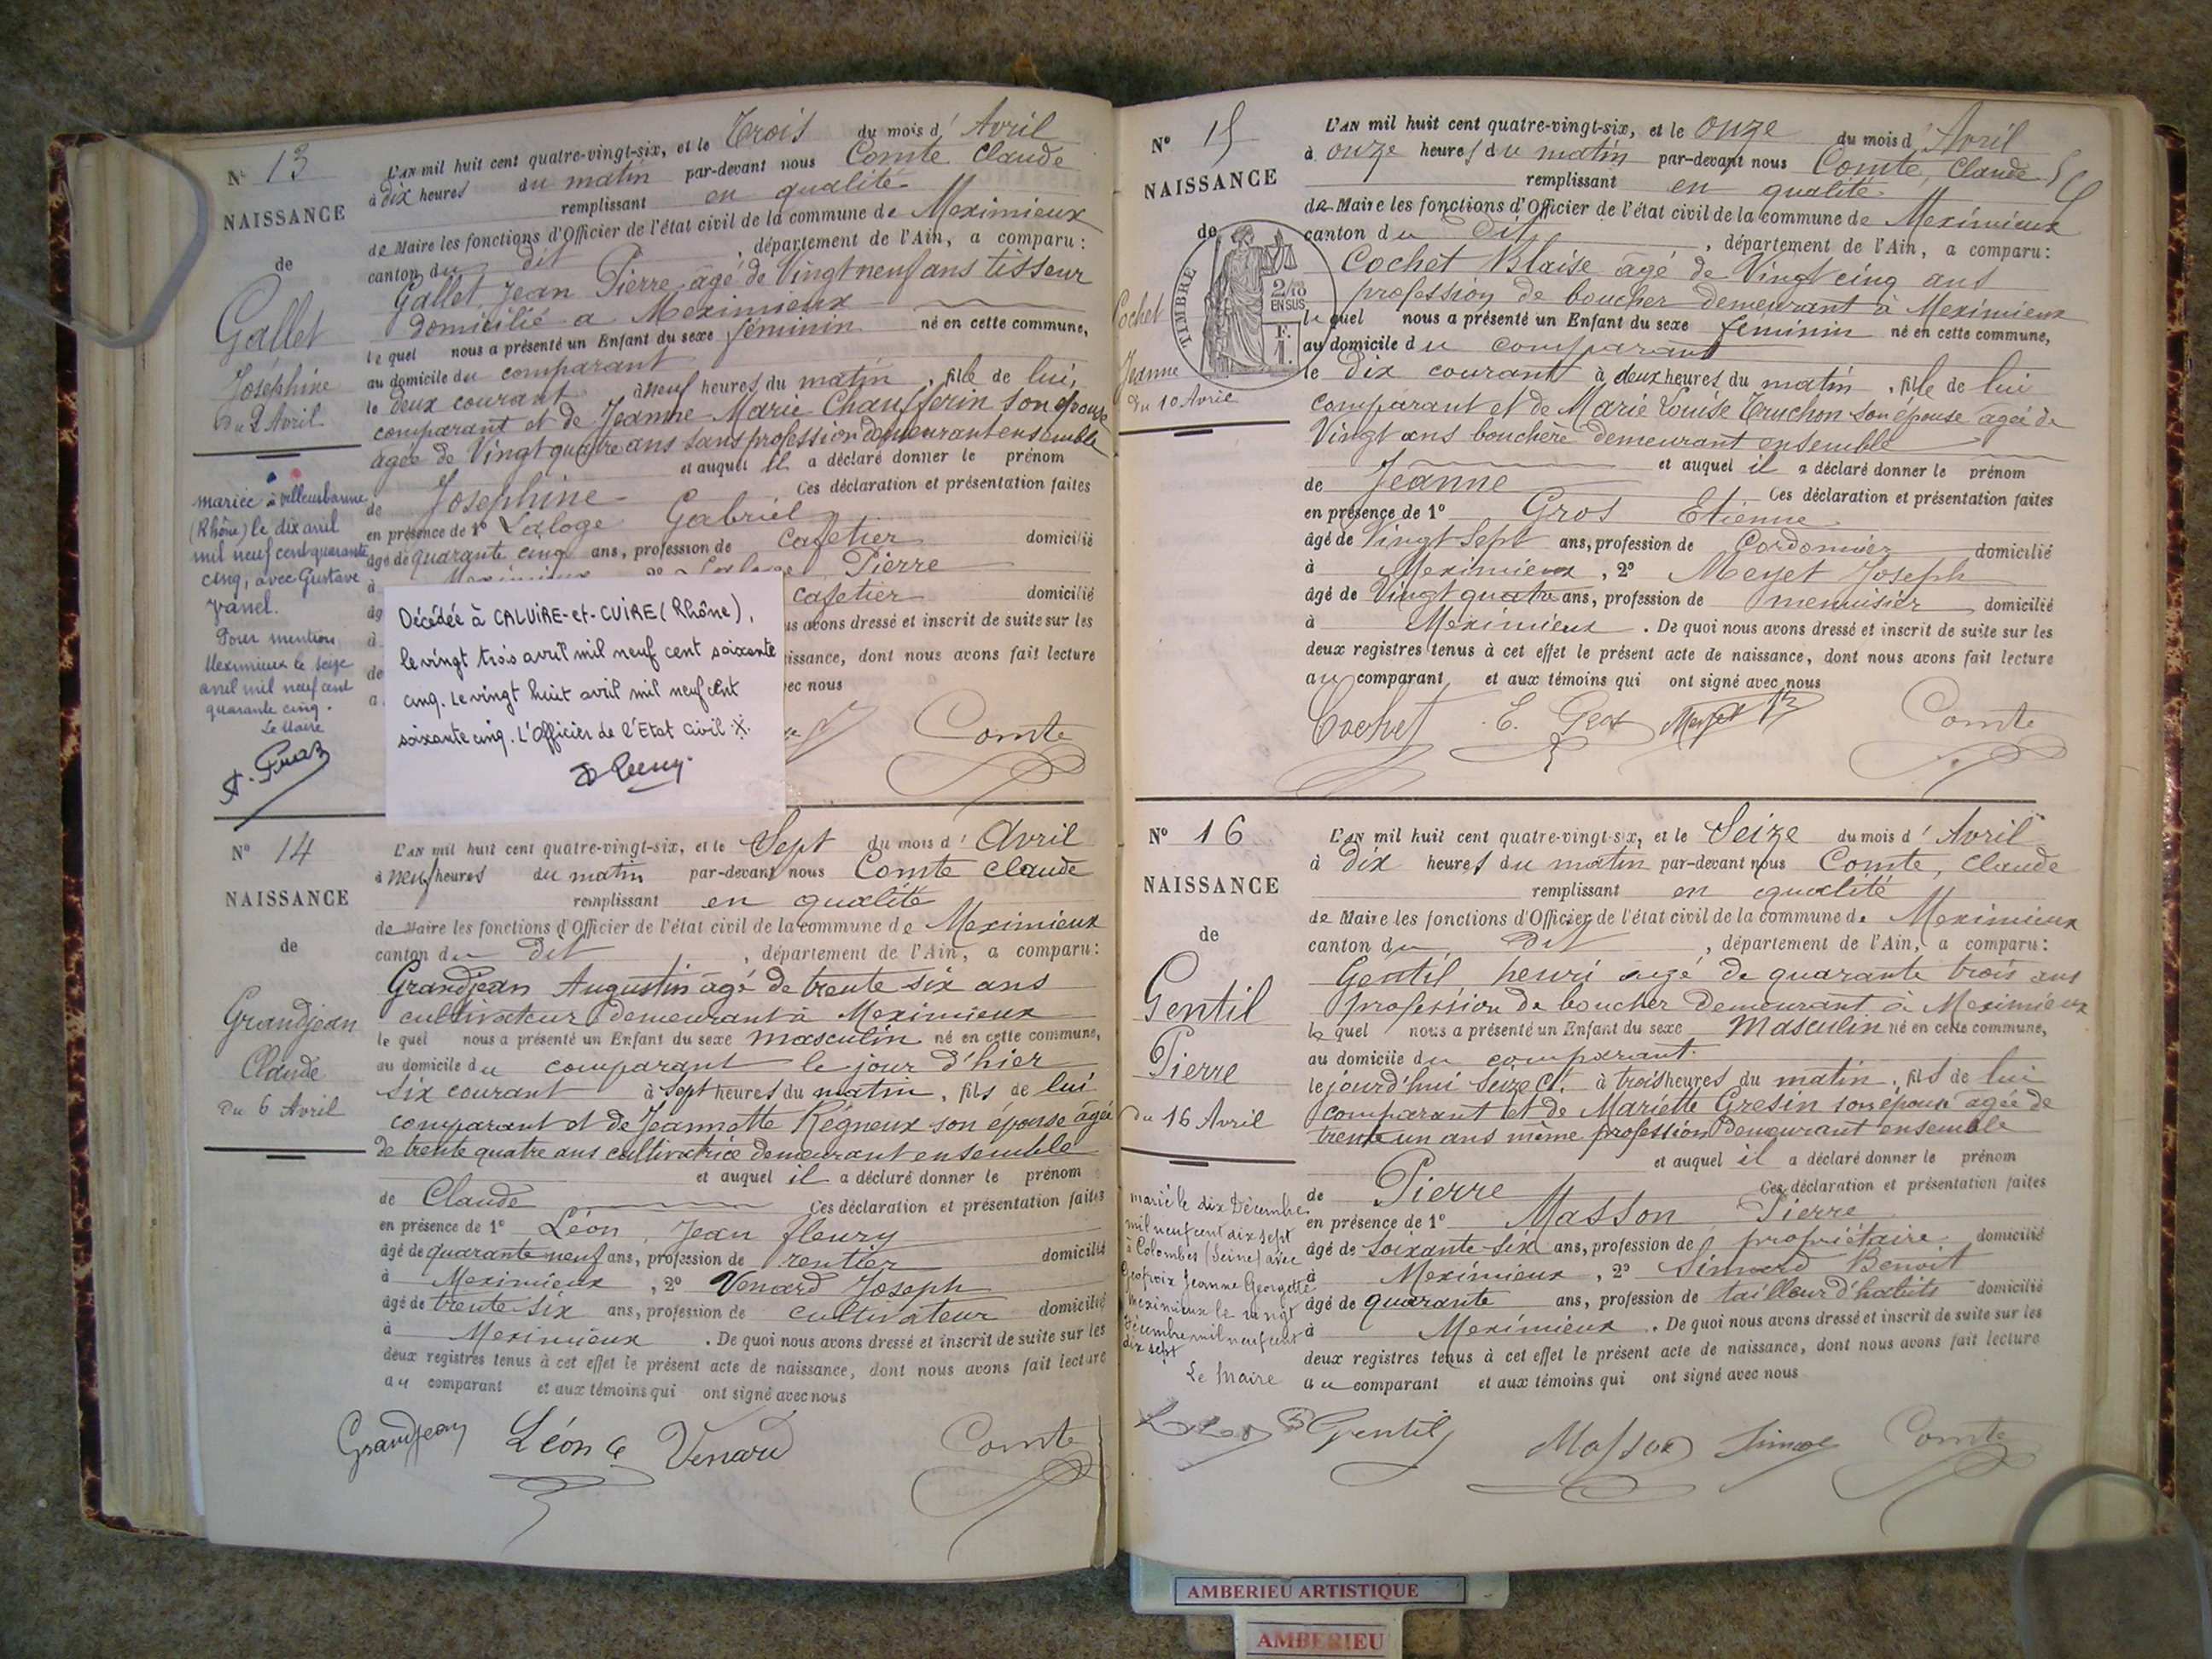 N° 13
NAISSANCE
de
Gallet
Joséphine
Du 2 Avril
mariée à Villeurbanne
(Rhône) le dix avril
mil neuf cent quarante
cinq, avec Gustave
Vanel.
Pour mention
Meximieux le seize
avril mil neuf cent
quarante cinq.
Le Maire
L'AN mil huit cent quatre-vingt-six, et le Trois du mois d'Avril
à dix heures du matin par-devant nous Comte Claude
remplissant en qualité
de Maire les fonctions d'Officier de l'état civil de la commune de Meximieux
canton du dit, département de l'Ain, a comparu:
Gallet Jean Pierre âgé de Vingt neuf ans tisseur
domicilié a Meximieux
lequel nous a présenté un Enfant du sexe féminin né en cette commune,
au domicile du comparant
le deux courant à neuf heures du matin, fille de lui
comparant et de Jeanne Marie Chaufferin son épouse
agée de Vingt quatre ans sans profession demeurant ensemble
et auquel il a déclaré donner le prénom
de Joséphine Ces déclaration et présentation faites
en présence de 1° Laloge Gabriel
âgé de quarante cinq ans, profession de Cafetier domicilié
à Meximieux 2° Laloge Pierre
cafetier domicilié
us avons dressé et inscrit de suite sur les
aissance, dont nous avons fait lecture
vec nous
Décédée à CALUIRE-et-CUIRE (Rhône),
le vingt trois avril mil neuf cent soixante
cinq. Le vingt huit avril mil neuf cent
soixante cinq. L'Officier de l'Etat Civil
Comte
N° 14
NAISSANCE
de
Grandjean
Claude
Du 6 Avril
L'AN mil huit cent quatre-vingt-six, et le Sept du mois d'Avril
à neuf heures du matin par-devant nous Comte Claude
remplissant en qualité
de Maire les fonctions d'Officier de l'état civil de la commune de Meximieux
canton du dit, département de l'Ain, a comparu:
Grandjean Augustin âgé de trente six ans
cultivateur demeurant à Meximieux
lequel nous a présenté un Enfant du sexe masculin né en cette commune,
au domicile du comparant le jour d'hier
six courant à sept heures du matin, fils de lui
comparant et de Jeannette Régneux son épouse âgée
de trente quatre ans cultivatrice demeurant ensemble
et auquel il a déclaré donner le prénom
de Claude Ces déclaration et présentation faites
en présence de 1° Léon, Jean fleury
âgé de quarante neuf ans, profession de rentier domicilié
à Meximieux, 2° Venard Joseph
âgé de trente six ans, profession de cultivateur domicilié
à Meximieux. De quoi nous avons dressé et inscrit de suite sur les
deux registres tenus à cet effet le présent acte de naissance, dont nous avons fait lecture
au comparant et aux témoins qui ont signé avec nous
Grandjean Léon Venard Comte
N° 15
NAISSANCE
de
Cochet
Jeanne
Du 10 Avril
TIMBRE
2/10
EN SUS
F.
1.
L'AN mil huit cent quatre-vingt-six, et le onze du mois d'Avril
à onze heures du matin par-devant nous Comte, Claude
remplissant en qualité
de Maire les fonctions d'Officier de l'état civil de la commune de Meximieux
canton du Dit, département de l'Ain, a comparu:
Cochet Blaise âgé de Vingt cinq ans
profession de boucher demeurant à Meximieux
lequel nous a présenté un Enfant du sexe féminin né en cette commune,
au domicile du comparant
le Dix courant à deux heures du matin, fille de lui
comparant et de Marie Louise Truchon son épouse agée de
Vingt ans bouchère demeurant ensemble
et auquel il a déclaré donner le prénom
de Jeanne Ces déclaration et présentation faites
en présence de 1° Gros Etienne
âgé de Vingt Sept ans, profession de Cordonnier domicilié
à Meximieux, 2° Meyet Joseph
âgé de Vingt quatre ans, profession de menuisier domicilié
à Meximieux. De quoi nous avons dressé et inscrit de suite sur les
deux registres tenus à cet effet le présent acte de naissance, dont nous avons fait lecture
au comparant et aux témoins qui ont signé avec nous
Cochet E. Gros Meyet Comte
N° 16
NAISSANCE
de
Gentil
Pierre
Du 16 Avril
marié le dix Décembre
mil neuf cent dix sept
à Colombes (Seine) avec
Geofroix Jeanne Georgette
Meximieux le vingt
Décembre mil neuf cent
dix sept
Le Maire
L'AN mil huit cent quatre-vingt-six, et le Seize du mois d'Avril
à Dix heures du matin par-devant nous Comte, Claude
remplissant en qualité
de Maire les fonctions d'Officier de l'état civil de la commune de Meximieux
canton du Dit, département de l'Ain, a comparu:
Gentil henri âgé de quarante trois ans
profession de boucher demeurant à Meximieux
lequel nous a présenté un Enfant du sexe Masculin né en cette commune,
au domicile du comparant
le jourd'hui Seize Ct. à trois heures du matin, fils de lui
comparant et de Mariette Gresin son épouse agée de
trente un ans même profession demeurant ensemble
et auquel il a déclaré donner le prénom
de Pierre Ces déclaration et présentation faites
en présence de 1° Masson Pierre
âgé de soixante six ans, profession de propriétaire domicilié
à Meximieux, 2° Simard Benoit
âgé de quarante ans, profession de tailleur d'habits domicilié
à Meximieux. De quoi nous avons dressé et inscrit de suite sur les
deux registres tenus à cet effet le présent acte de naissance, dont nous avons fait lecture
au comparant et aux témoins qui ont signé avec nous
Gentil Masson Comte
AMBERIEU ARTISTIQUE
AMBERIEU